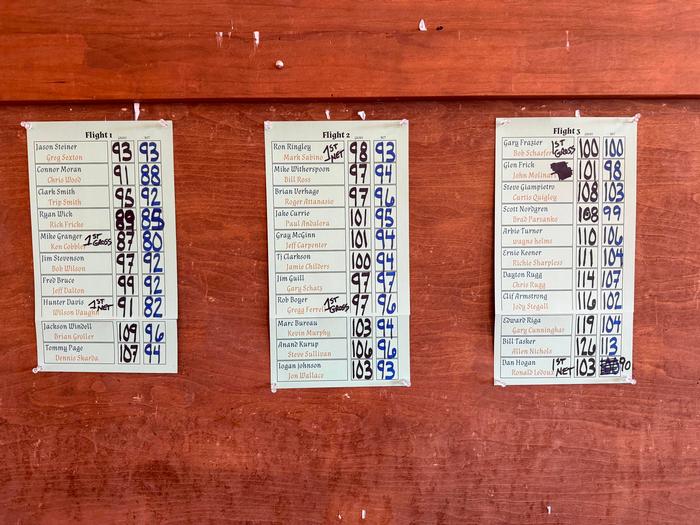 Flight 1
GROSS NET
Jason Steiner 93 93
Greg Sexton
Connor Moran 91 88
Chris Wood
Clark Smith 95 92
Trip Smith
Ryan Wick 89 85
Rick Fricke
Mike Granger 1ST GROSS 87 80
Ken Cobble
Jim Stevenson 97 92
Bob Wilson
Fred Bruce 99 92
Jeff Dalton
Hunter Davis 1ST NET 91 82
Wilson Vaughn
Jackson Windell 109 96
Brian Groller
Tommy Page 107 94
Dennis Skarda
Flight 2
GROSS NET
Ron Ringley 1ST NET 98 93
Mark Sabino
Mike Witherspoon 97 94
Bill Ross
Brian Verhage 97 96
Roger Attanasio
Jake Currie 101 95
Paul Andalora
Gray McGinn 101 94
Jeff Carpenter
Tj Clarkson 100 94
Jamie Childers
Jim Guill 97 97
Gary Schatz
Rob Boyer 1ST GROSS 97 96
Gregg
Marc Bureau 103 94
Kevin Murphy
Anand Kurup 106 96
Steve Sullivan
logan johnson 103 93
Jon Wallace
Flight 3
GROSS NET
Gary Frazier 1ST GROSS 100 100
Bob Schaefer
Glen Frick 101 98
John Molina
Steve Giampietro 108 103
Curtis Quigley
Scott Nordgren 108 99
Brad Parsanko
Arbie Turner 110 106
wayne helms
Ernie Keener 111 104
Richie Sharpless
Dayton Rugg 114 107
Chris Rugg
Clif Armstrong 116 102
Jody Stegall
Edward Riga 119 104
Gary Cunningham
Bill Tasker 126 113
Allen Nichols
Dan Hogan 1ST NET 103 90
Ronald Ledoux